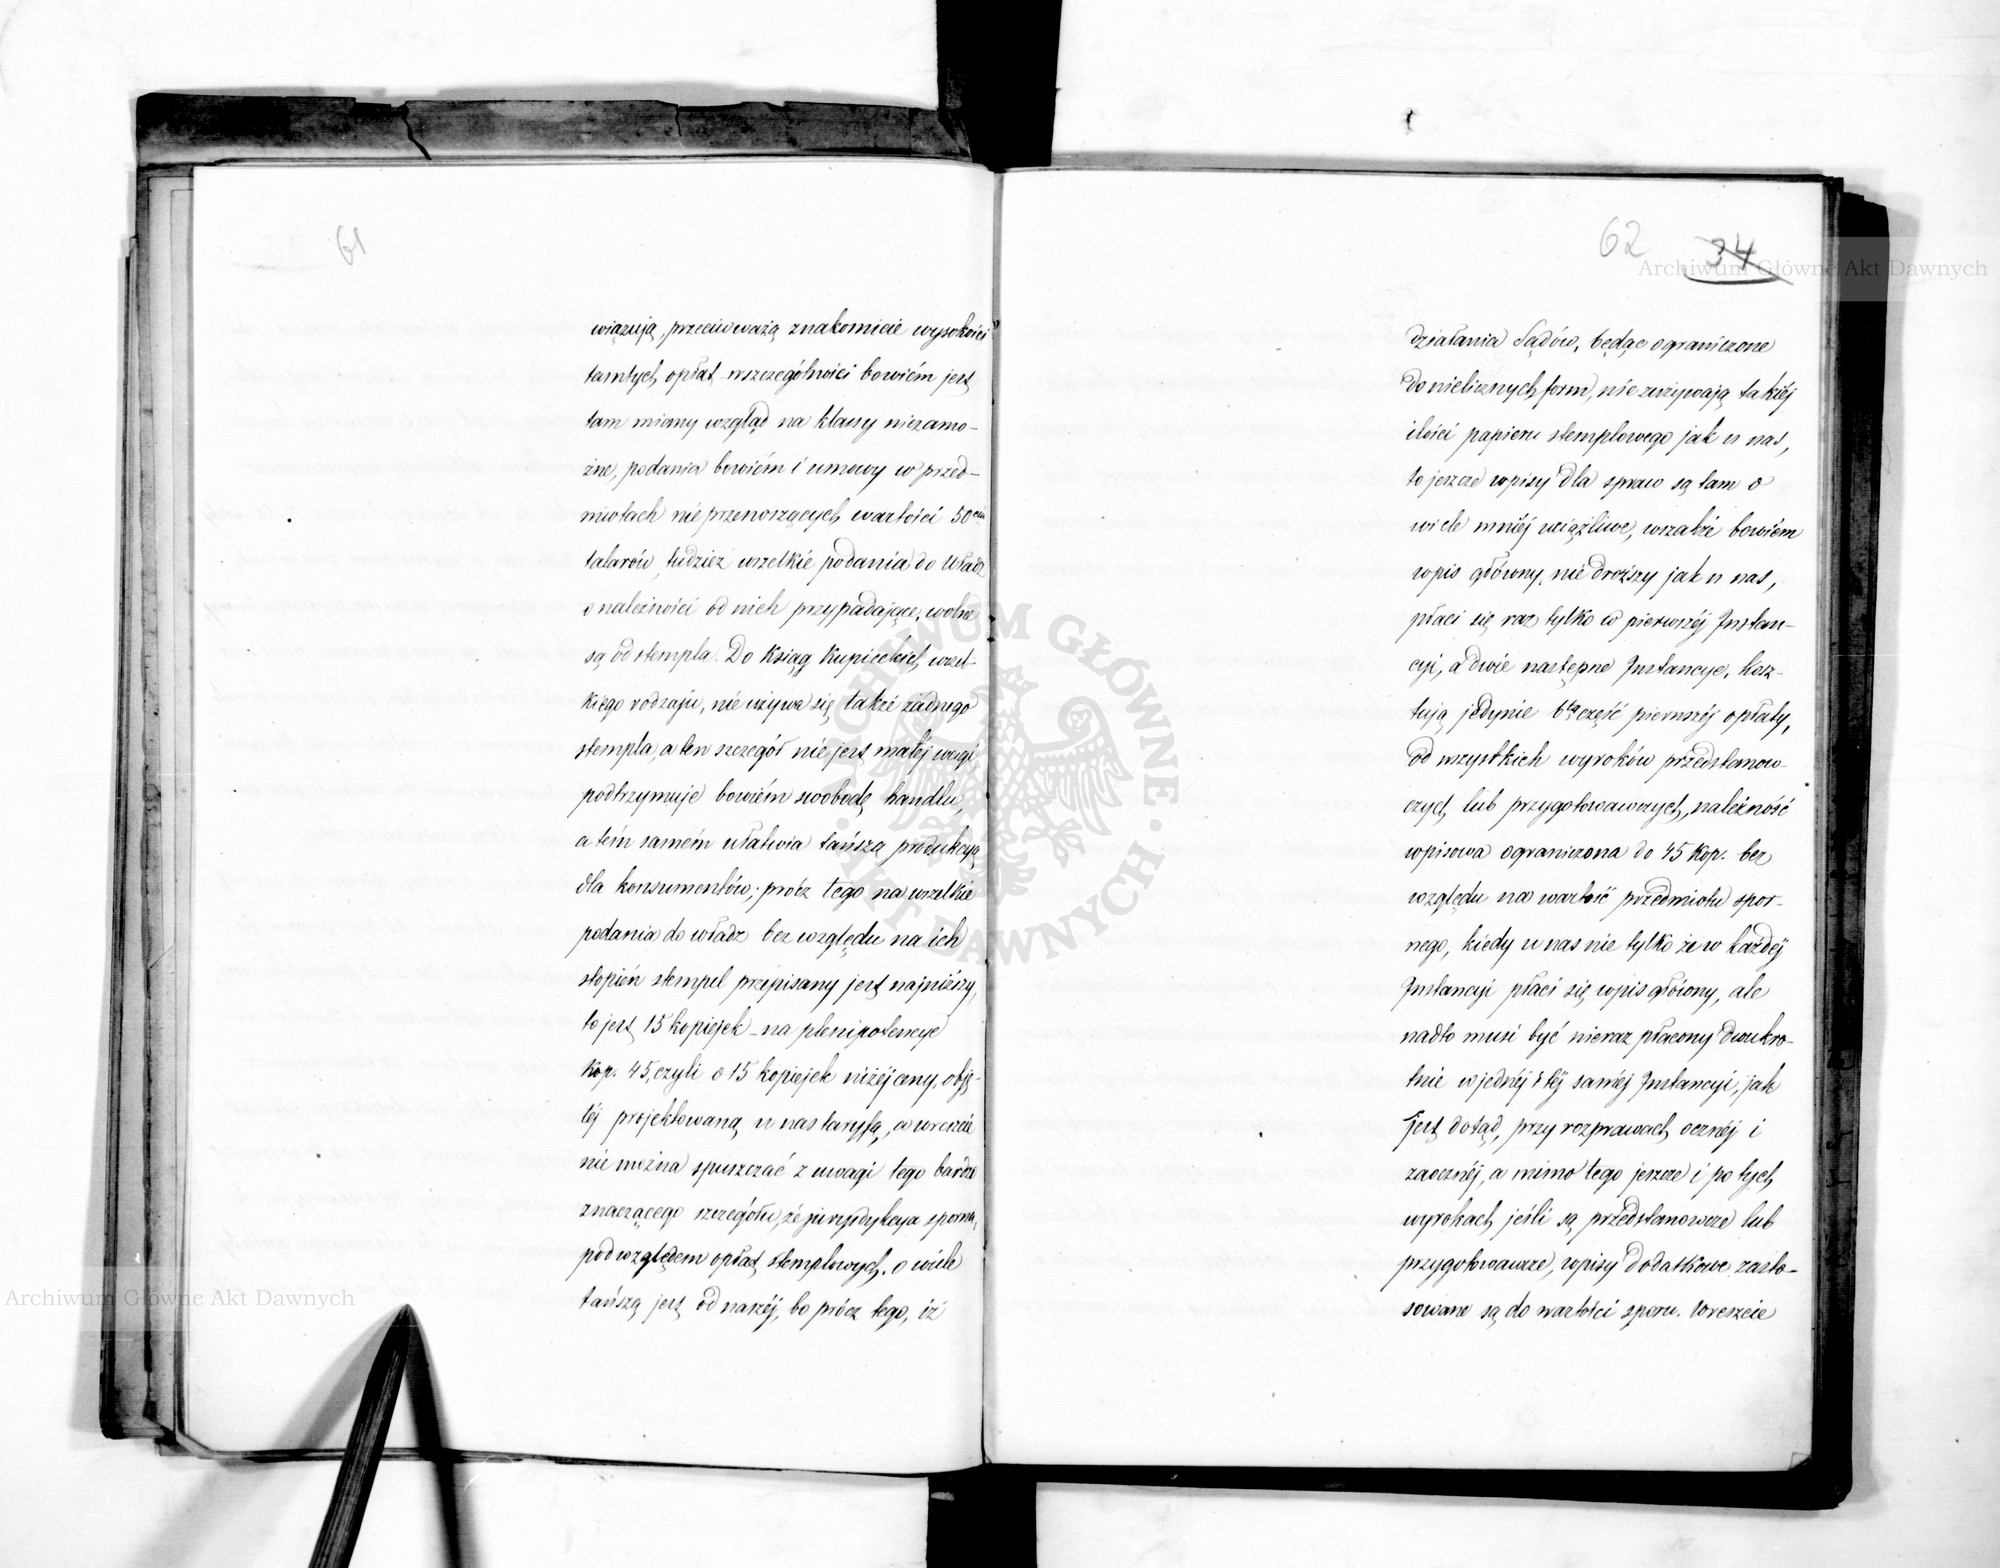 61
wiązują, przeciwważą znakomicie wysokości
tamtych opłat – w szczególności bowiém jest
tam miany wzgląd na klassy niezamo-
żne, podania bowiém i umowy w przed-
miotach nieprzenoszących wartości 50ciu
talarów, tudzież wszelkie podania do Władz
o należności od nich przypadające, wolne
są od stempla. Do Ksiąg Kupieckich wszel-
kiego rodzaju, nie używa się także żadnego
stempla, a ten szczegół nie jest małej wagi
podtrzymuje bowiém swobodę handlu,
a tém samém ułatwia tańszą produkcyą
dla konsumentów; prócz tego na wszelkie
podania do władz bez względu na ich
stopień stempel przepisany jest najniższy,
to jest 15 kopiejek – na plenipotencye
Kop. 45, czyli o 15 kopiejek niżéj ceny, obję-
téj projektowaną u nas taryfą, a wreszcie
nie można spuszczać z uwagi tego bardzo
znaczącego szczegółu, że juryzdykcya sporna,
pod względem opłat stemplowych, o wiele
tańszą jest od naszéj, bo prócz tego, iż
62
34
działania Sądów, będąc ograniczone
do nielicznych form, nie zużywają takiéj
ilości papieru stemplowego jak u nas,
to jeszcze wpisy dla spraw są tam o
wiele mniéj uciążliwe, wszakże bowiém
wpis główny, nie droższy jak u nas,
płaci się raz tylko w pierwszéj Instan-
cyi, a dwie następne Instancye, kosz-
tują jedynie 6tą część pierwszéj opłaty,
od wszystkich wyroków przedstanow-
czych lub przygotowawczych, należność
wpisowa ograniczona do 45 Kop. bez
względu na wartość przedmiotu spor-
nego, kiedy u nas nie tylko że w każdéj
Instancyi płaci się wpis główny, ale
nadto musi być nieraz płacony dwukro-
tnie w jednéj i téj saméj Instancyi, jak
jest dotąd, przy rozprawach ocznéj i
zaocznéj, a mimo tego jeszcze i po tych
wyrokach jeśli są przedstanowcze lub
przygotowawcze, wpisy dodatkowe zasto-
sowane są do wartości sporu. Wreszcie
Archiwum Główne Akt Dawnych
Archiwum Główne Akt Dawnych
ARCHIWUM GŁÓWNE · AKT DAWNYCH ·